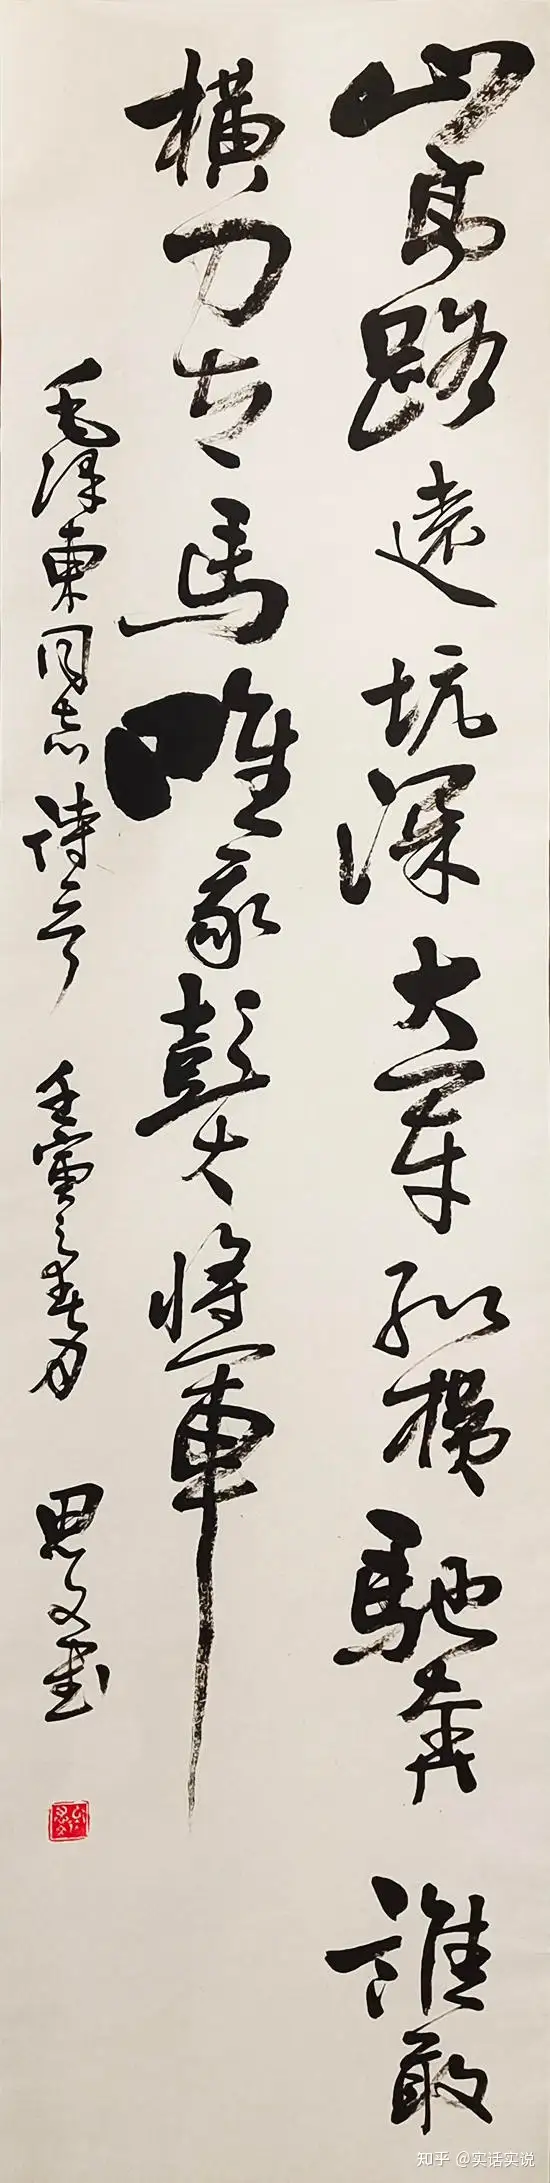 山高路遠坑深大军纵横馳奔誰敢
橫刀立馬唯我彭大將軍
毛泽東同志诗 壬寅之春月 思文書
知乎 @实话实说